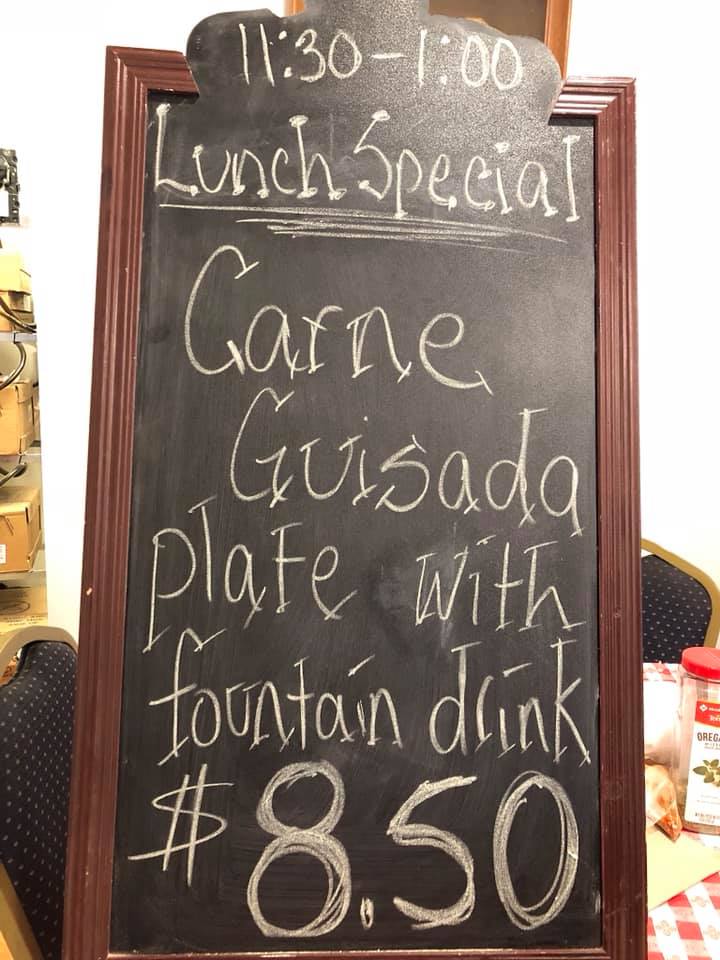 11:30-1:00
Lunch Special
Carne
Guisada
plate with
fountain drink
$8.50